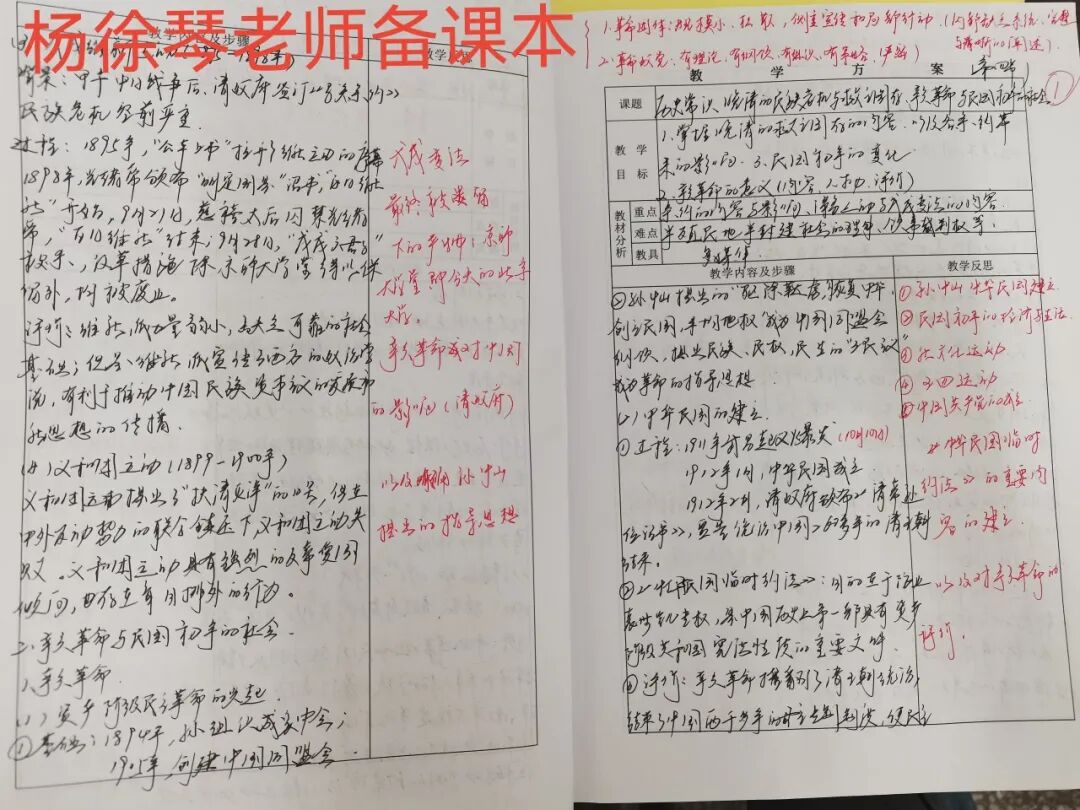 杨徐琴老师备课本
教学内容及步骤
背景：甲午中日战争后，清政府签订《马关条约》
民族危机空前严重.
过程：1895年，"公车上书"拉开了维新运动的序幕
1898年，光绪帝颁布"明定国是"诏书，"百日维
新"开始，9月21日，慈禧太后囚禁光绪
帝，"百日维新"结束；9月28日，"戊戌六君子"
改革措施除京师大学堂得以保
留外，均被废止。
评价：维新派力量弱小，缺乏可靠的社会
基础；但是，维新派宣传了西方的政治学
说，有利于推动中国民族资本主义的发展和
新思想的传播.
(4)义和团运动（1899-1900年）
义和团运动提出了"扶清灭洋"的口号，但在
中外反动势力的联合镇压下义和团运动失
败。义和团运动具有强烈的反帝爱国
倾向，也存在盲目排外的行为。
二、辛亥革命与民国初年的社会.
1.辛亥革命.
(1)资产阶级民主革命的兴起
①基础：1894年，孙组织成立兴中会；
1905年，创建中国同盟会
戊戌变法
最终被袭留
下的
大学堂即今天的北京
大学。
辛亥革命成对中国
的影响（清政府）
以及孙中山
提出的指导思想
1.革命团体：规模小、松散、侧重宣传和局部行动
2.革命政党：有理论、有纲领、有组织、有策略、严密
教学方案
①
课题
历史常识 晚清的民族危机与救亡图存、辛亥革命与民国初年的社会
教学目标
1.掌握晚清的救亡图存的内容，以及各条约带
来的影响. 3.民国初年的变化
2.辛亥革命的意义（内容、人物、评价）
教材分析
重点
条约的内容与影响、洋务运动与戊戌变法的内容.
难点
半殖民地半封建社会的理解、领事裁判权等.
教具
多媒体
教学内容及步骤
教学反思
②孙中山提出的"驱除鞑虏，恢复中华，
创立民国，平均地权"成为中国同盟会
纲领，提出民族、民权、民生的"三民主义"
成为革命的指导思想
(2)中华民国的建立.
①过程：1911年武昌起义爆发（10月10日）
1912年1月，中华民国成立
1912年2月，清政府颁布《清帝退
位诏书》，宣告统治中国260多年的清王朝
结束。
②《中华民国临时约法》：目的在于防止
袁世凯专权，是中国历史上第一部具有资产
阶级共和国宪法性质的重要文件.
③评价：辛亥革命推翻了清王朝统治，
结束了中国两千多年的封主专制制度，使民主
①孙中山 中华民国建立.
②民国初年的经济与生活.
③新文化运动
④五四运动
⑤中国共产党的成立.
《中华民国临时
约法》的重要内
容的建立
以及对辛亥革命的
评价.